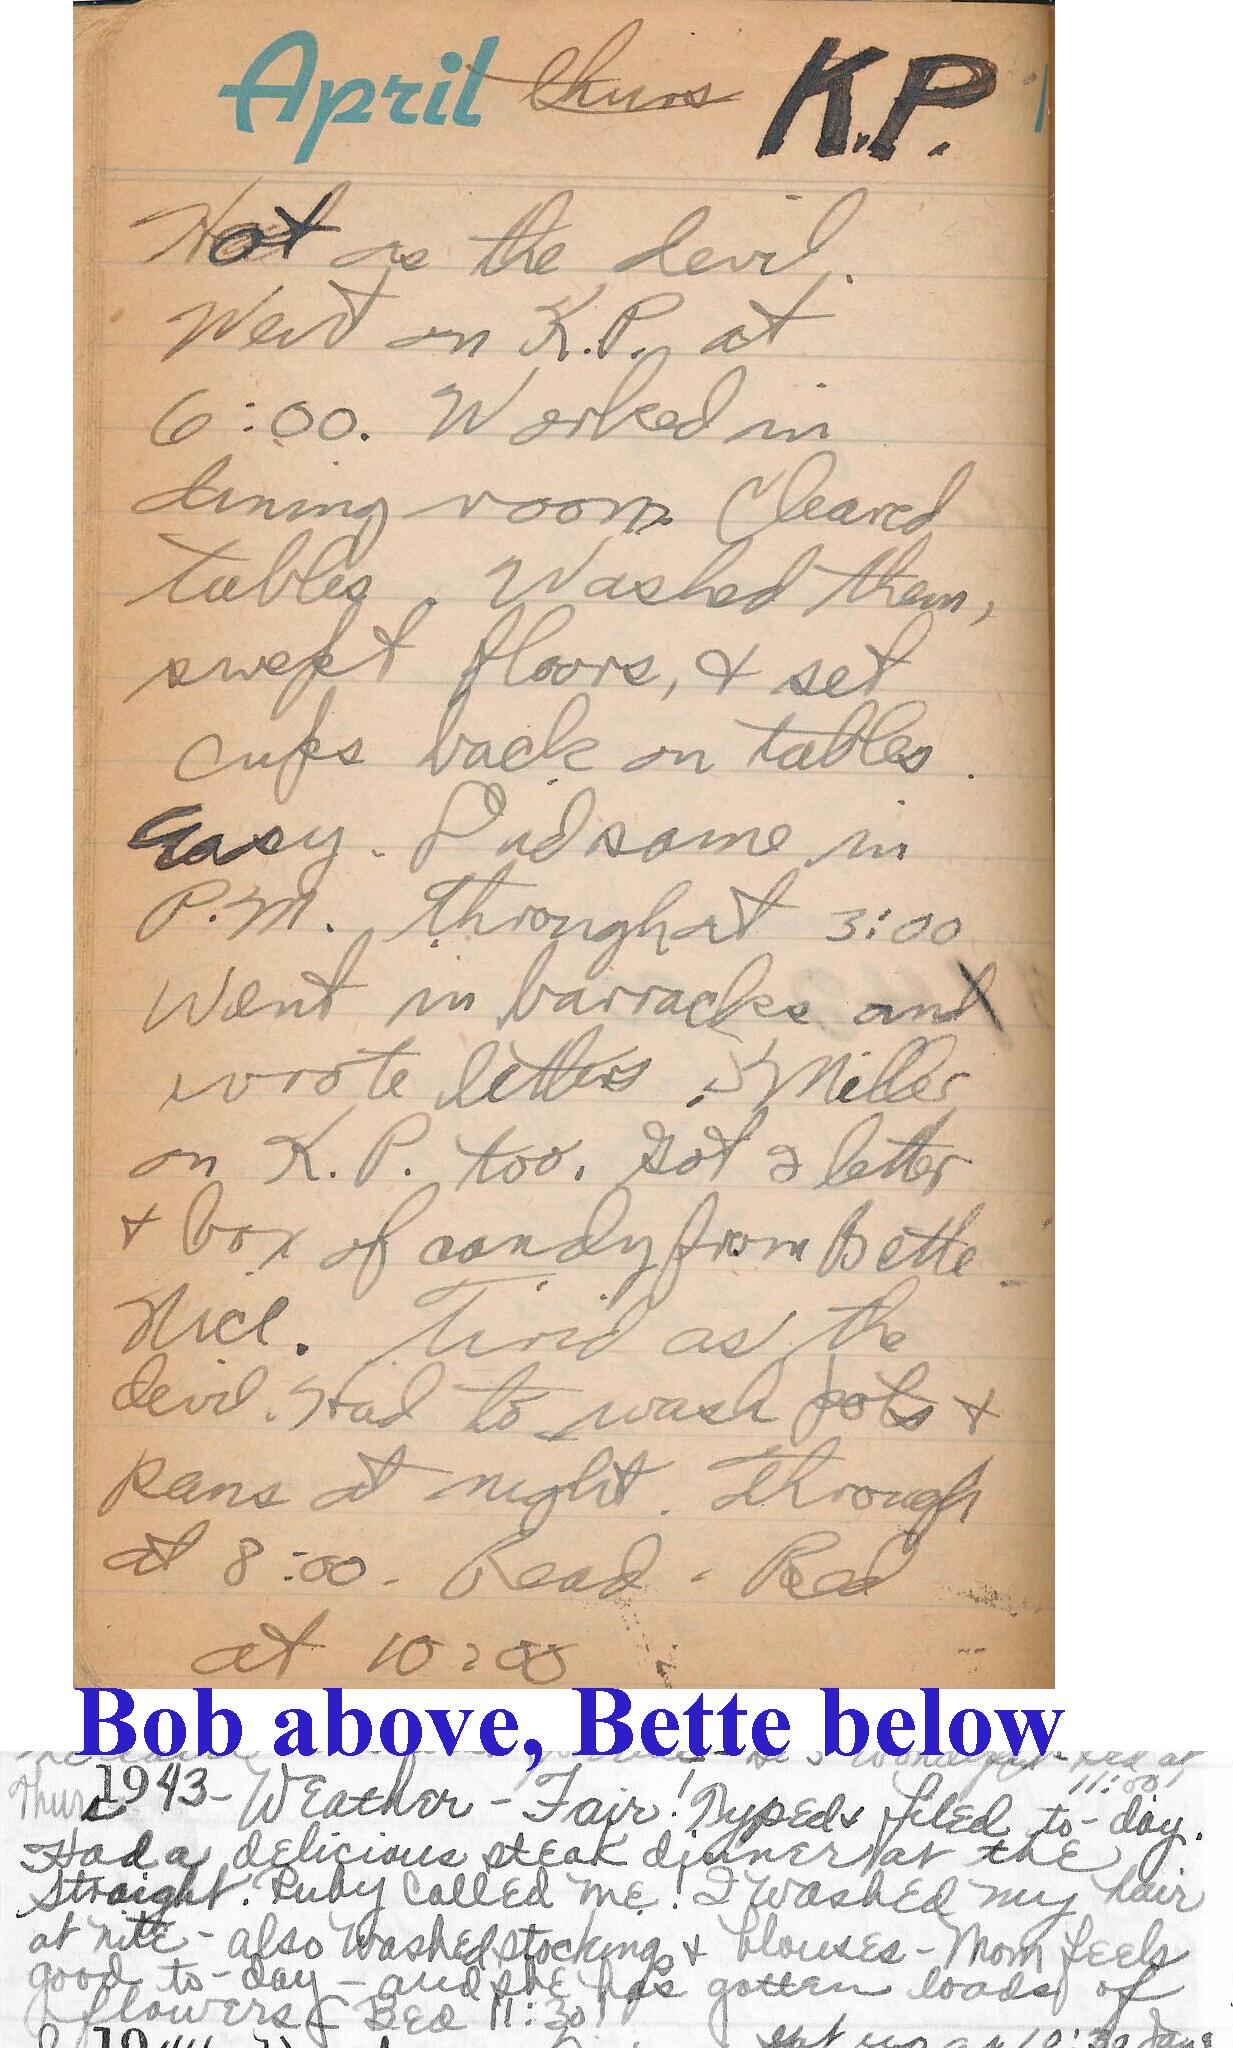 April thurs K.P.
Hot as the devil.
Went on K.P. at
6:00. Worked in
dining room. Cleared
tables. Washed them,
swept floors, & set
cups back on tables.
Easy. Did same in
P.M. Through at 3:00
Went in barracks and
wrote letters. Miller
on K.P. too. Got 2 letter
& box of candy from Bette
Nice. Tired as the
devil. Had to wash pots &
pans at night. Through
at 8:00 - Read - Bed
at 10:00
Bob above, Bette below
at
11:00!
Thurs 1943 - Weather - Fair! Typed & filed to-day.
Had a delicious steak dinner at the
Straight. Ruby called me! I washed my hair
at nite - also washed stockings & blouses - Mom feels
good to-day - and she has gotten loads of
flowers Bed 11:30!
19